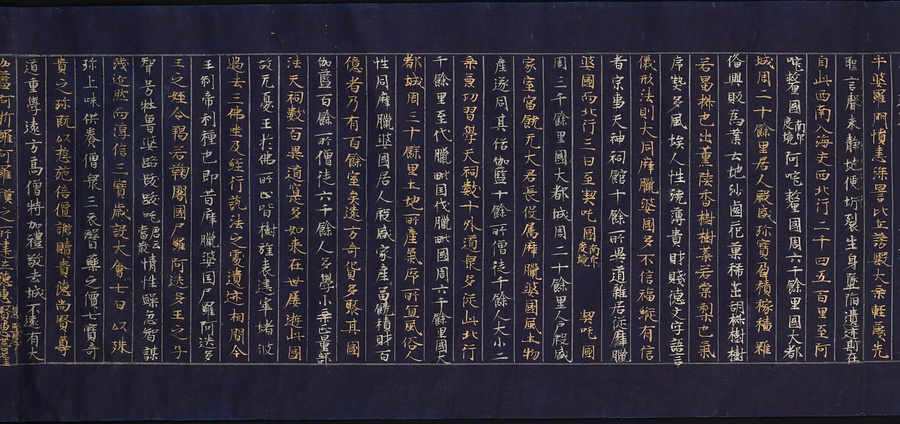 半婆羅門憤恚深詈比丘謗毀大乗軽蔑先
聖言聲未靜地便拆裂生身墜陷遺迹斯在
自此西南入海交西北行二千四五百里至阿
吒釐國南印度境阿吒釐國周六千餘里國大都
城周二十餘里居人殷盛珎寶盈積稼穡雖
俗興販為業土地沙鹵花菓稀少出胡椒樹樹
若蜀椒也出薫陸香樹樹葉若棠梨也氣
序熱多風埃人性澆薄貴財賤德文字語言
儀形法則大同摩臘婆國多不信福縱有信
者宗事天神祠館十餘所異道雜居從摩臘
婆國西北行三日至契吒國南印度境 契吒國
周三千餘里國大都城周二十餘里人戶殷盛
家室富饒无大君長役屬摩臘婆國風土物
產遂同其俗伽藍十餘所僧徒千餘人大小二
乗兼功習學天祠數十外道衆多從此北行
千餘里至伐臘毗國伐臘毗國周六千餘里國大
都城周三十餘里土地所產氣序所宜風俗人
性同摩臘婆國居人殷盛家產富饒積財百
億者乃有百餘室矣遠方奇貨多聚其國
伽藍百餘所僧徒六千餘人多學小乗正量部
法天祠數百異道寔多如來在世屢遊此國
故无憂王於佛所止皆樹旌表建窣緒波
過去三佛坐及經行說法之處遺迹相間今
王剎帝利種也即昔摩臘婆國尸羅阿迭多
王之姪今羯若鞠闍國尸羅阿迭多王之子
智号杜魯婆跋跋吒唐云常叡情性躁急智謀
淺近然而淳信三寶歲設大會七日以殊
珎上味供養僧衆三衣醫藥之價七寶奇
貴之珎既以惣施倍價詶贖貴德尚賢尊
道重學遠方高僧特加禮敬去城不遠有大
伽藍阿折羅阿羅漢之所建立德慧